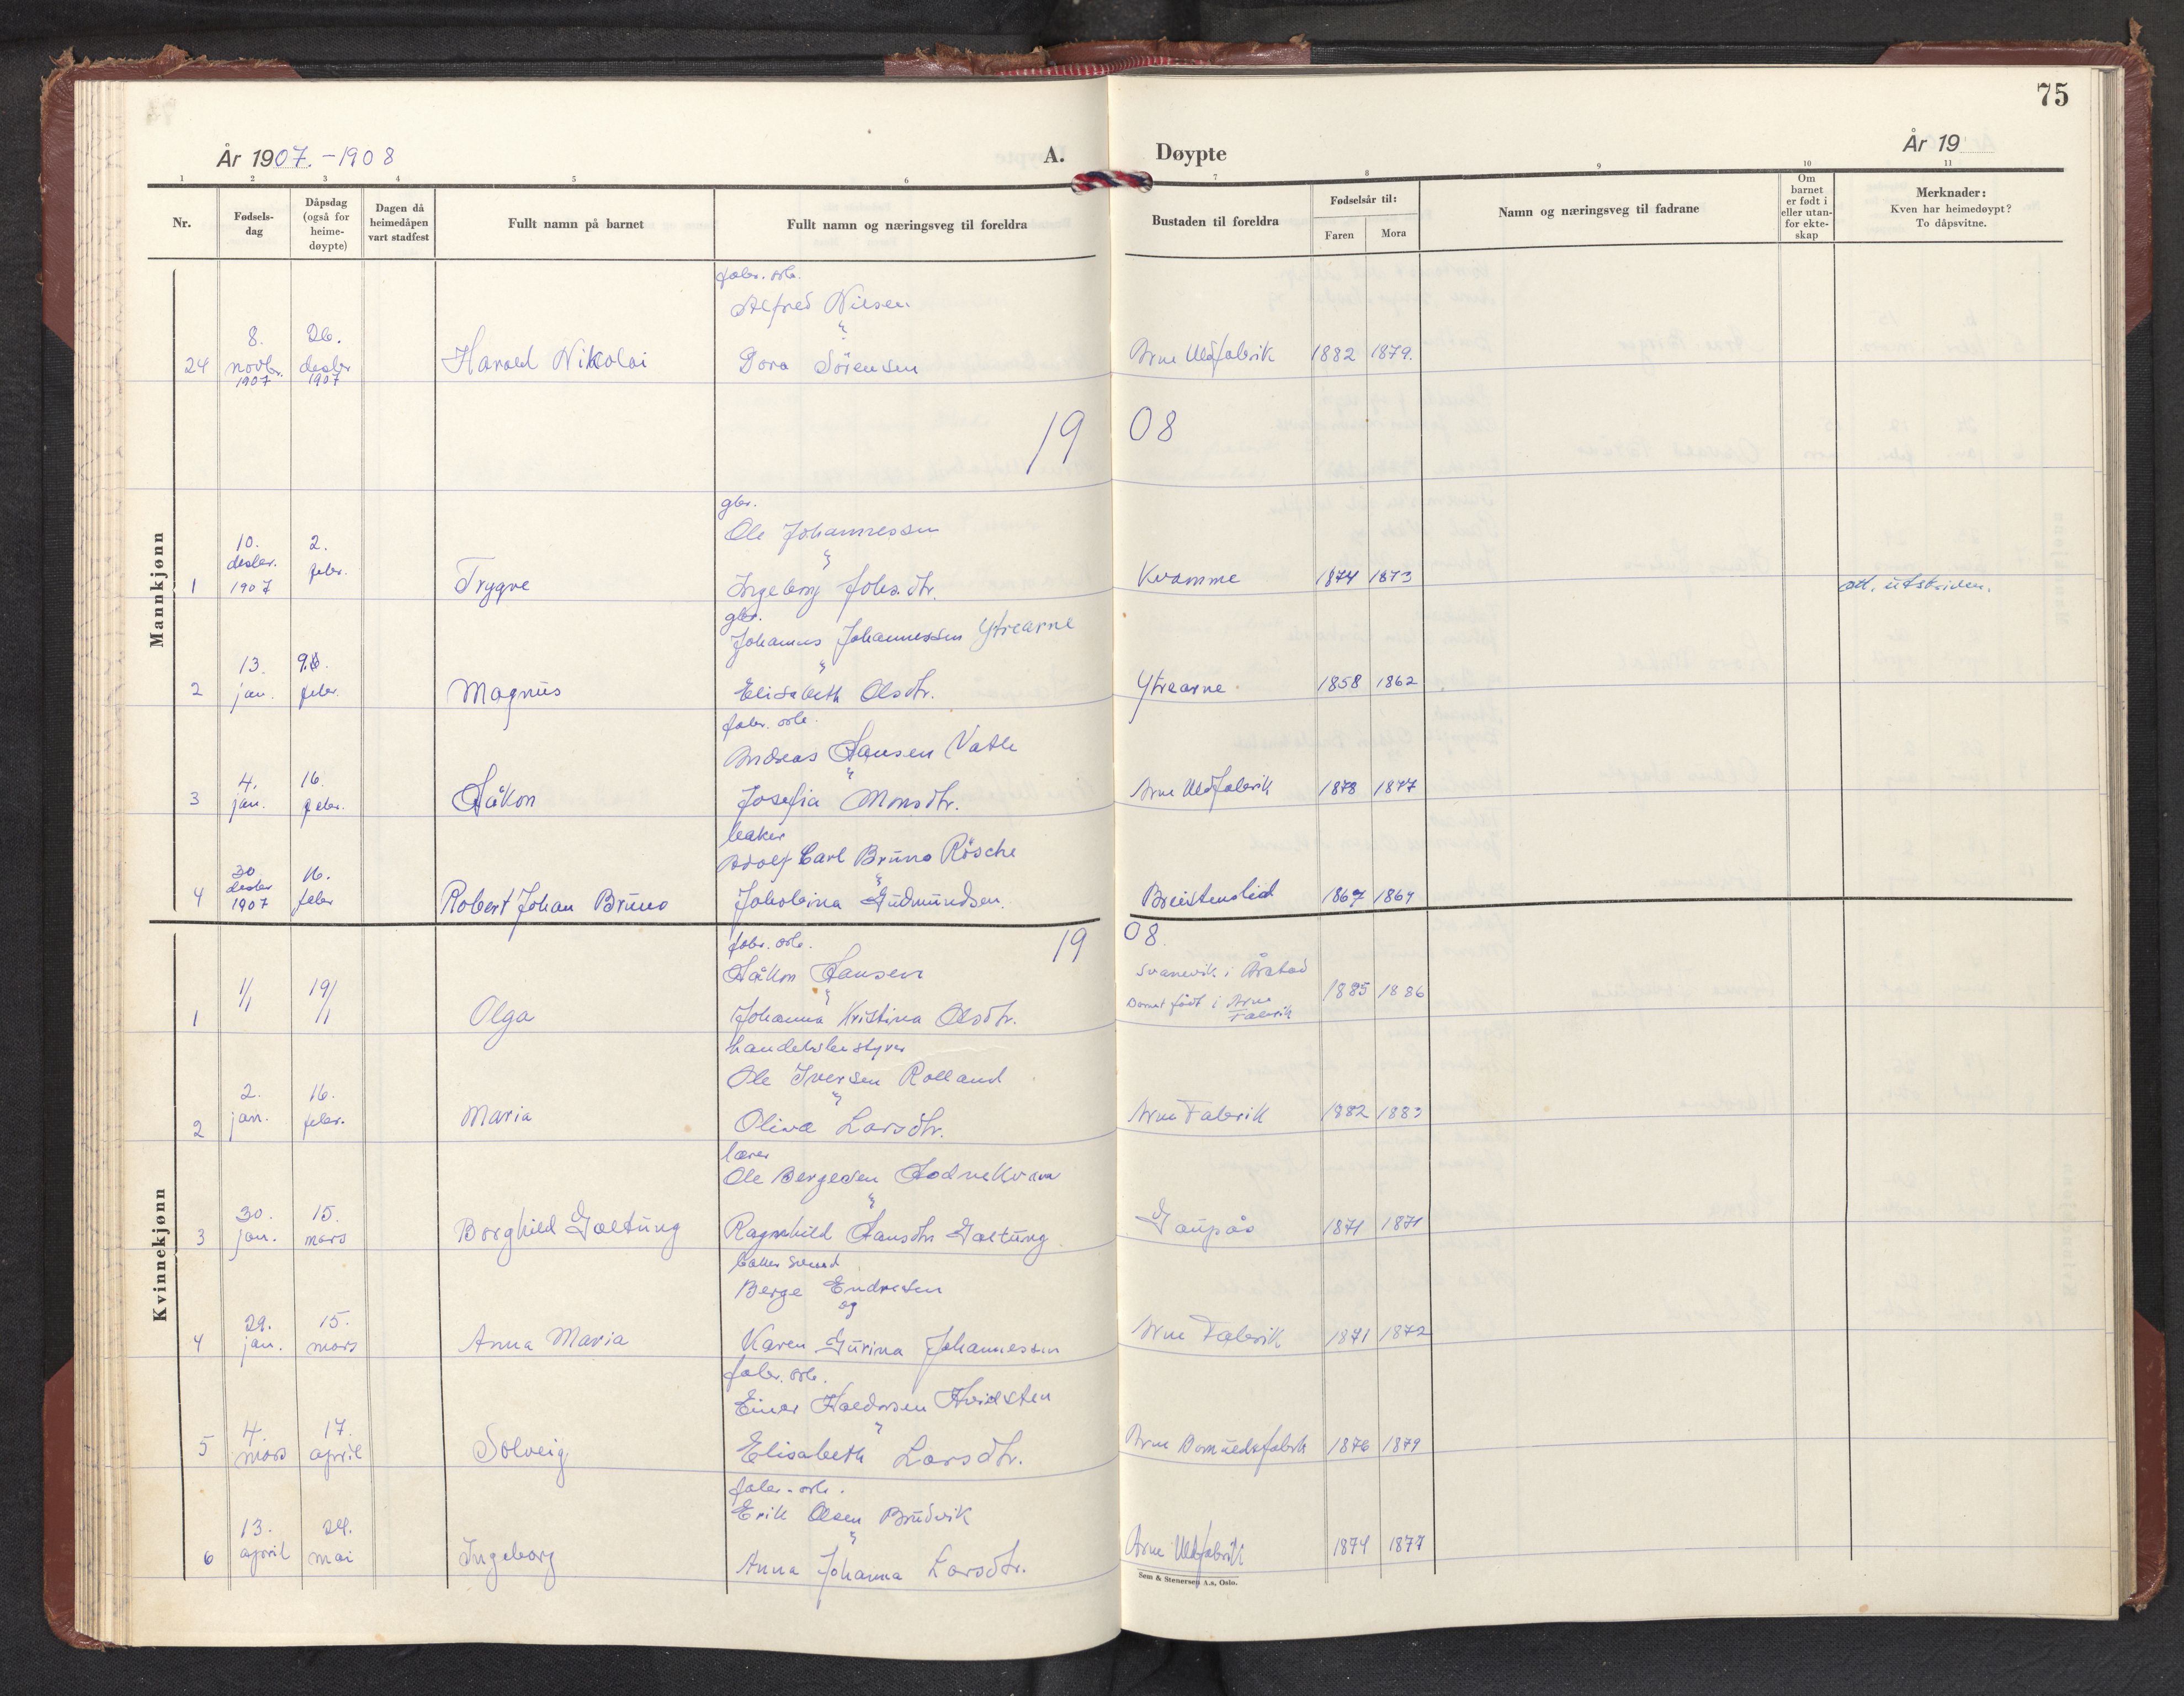 75
År 1907. - 1908
A.
Døypte
År 19
1 2 3 4 5 6 7 8 9 10 11
Nr.
Fødsels-
dag
Dåpsdag
(også for
heime-
døypte)
Dagen då
heimedåpen
vart stadfest
Fullt namn på barnet
Fullt namn og næringsveg til foreldra
Bustaden til foreldra
Fødselsår til:
Faren
Mora
Namn og næringsveg til fadrane
Om
barnet
er født i
eller utan-
for ekte-
skap
Merknader:
Kven har heimedøypt?
To dåpsvitne.
Mannkjønn
fabr. arb.
Alfred Nilsen
"
24 8. novbr. 1907 26. desbr 1907 Harald Nikolai Dora Sörensen Arne Uldfabrik 1882 1879.
19 08
gbr.
Ole Johannessen
"
1 10. desbr. 1907 2. febr. Trygve Ingeborg Johs.dtr. Kvamme 1874 1873 att. utskriven.
gbr.
Johannes Johannessen Ytrearne
"
2 13. jan. 9. febr. Magnus Elisabeth Olsdtr. Ytrearne 1858 1862
fabr. arb.
Andreas Hansen Vatle
"
3 4. jan. 16. febr. Håkon Josefia Monsdtr. Arne Uldfabrik 1878 1877
baker
Adolf Carl Bruno Rösche
"
4 30 desbr 1907 16. febr Robert Johan Bruno Jakobina Gudmundsen. Breistenslid 1867 1869
Kvinnekjønn
19 08.
fabr. arb.
Håkon Hansen
"
Svanevik i Årstad
Barnet født i Arne
Fabrik
1 1/1 19/1 Olga Johanna Kristina Olsdtr. 1885 1886
handelsbestyrer
Ole Iversen Rolland
"
2 2. jan. 16. febr. Maria Oliva Larsdtr. Arne Fabrik 1882 1883
lærer
Ole Bergesen Hodnekvam
"
3 30. jan. 15. mars Borghild Galtung Ragnhild Hansdtr Galtung Gaupås 1871 1871
baker svend
Berge Endresen
og
4 29. jan. 15. mars Anna Maria Karen Gurina Johannessen Arne Fabrik 1871 1872
fabr. arb.
Einar Haldorsen Hvidsten
"
5 4. mars 17. april Solveig Elisabeth Larsdtr. Arne Bomuldsfabrk 1876 1879
fabr. arb.
Erik Olsen Brudvik
"
6 13. april 24. mai Ingeborg Anna Johanna Larsdtr. Arne Uldfabrik 1874 1877
Sem & Stenersen A.s, Oslo.